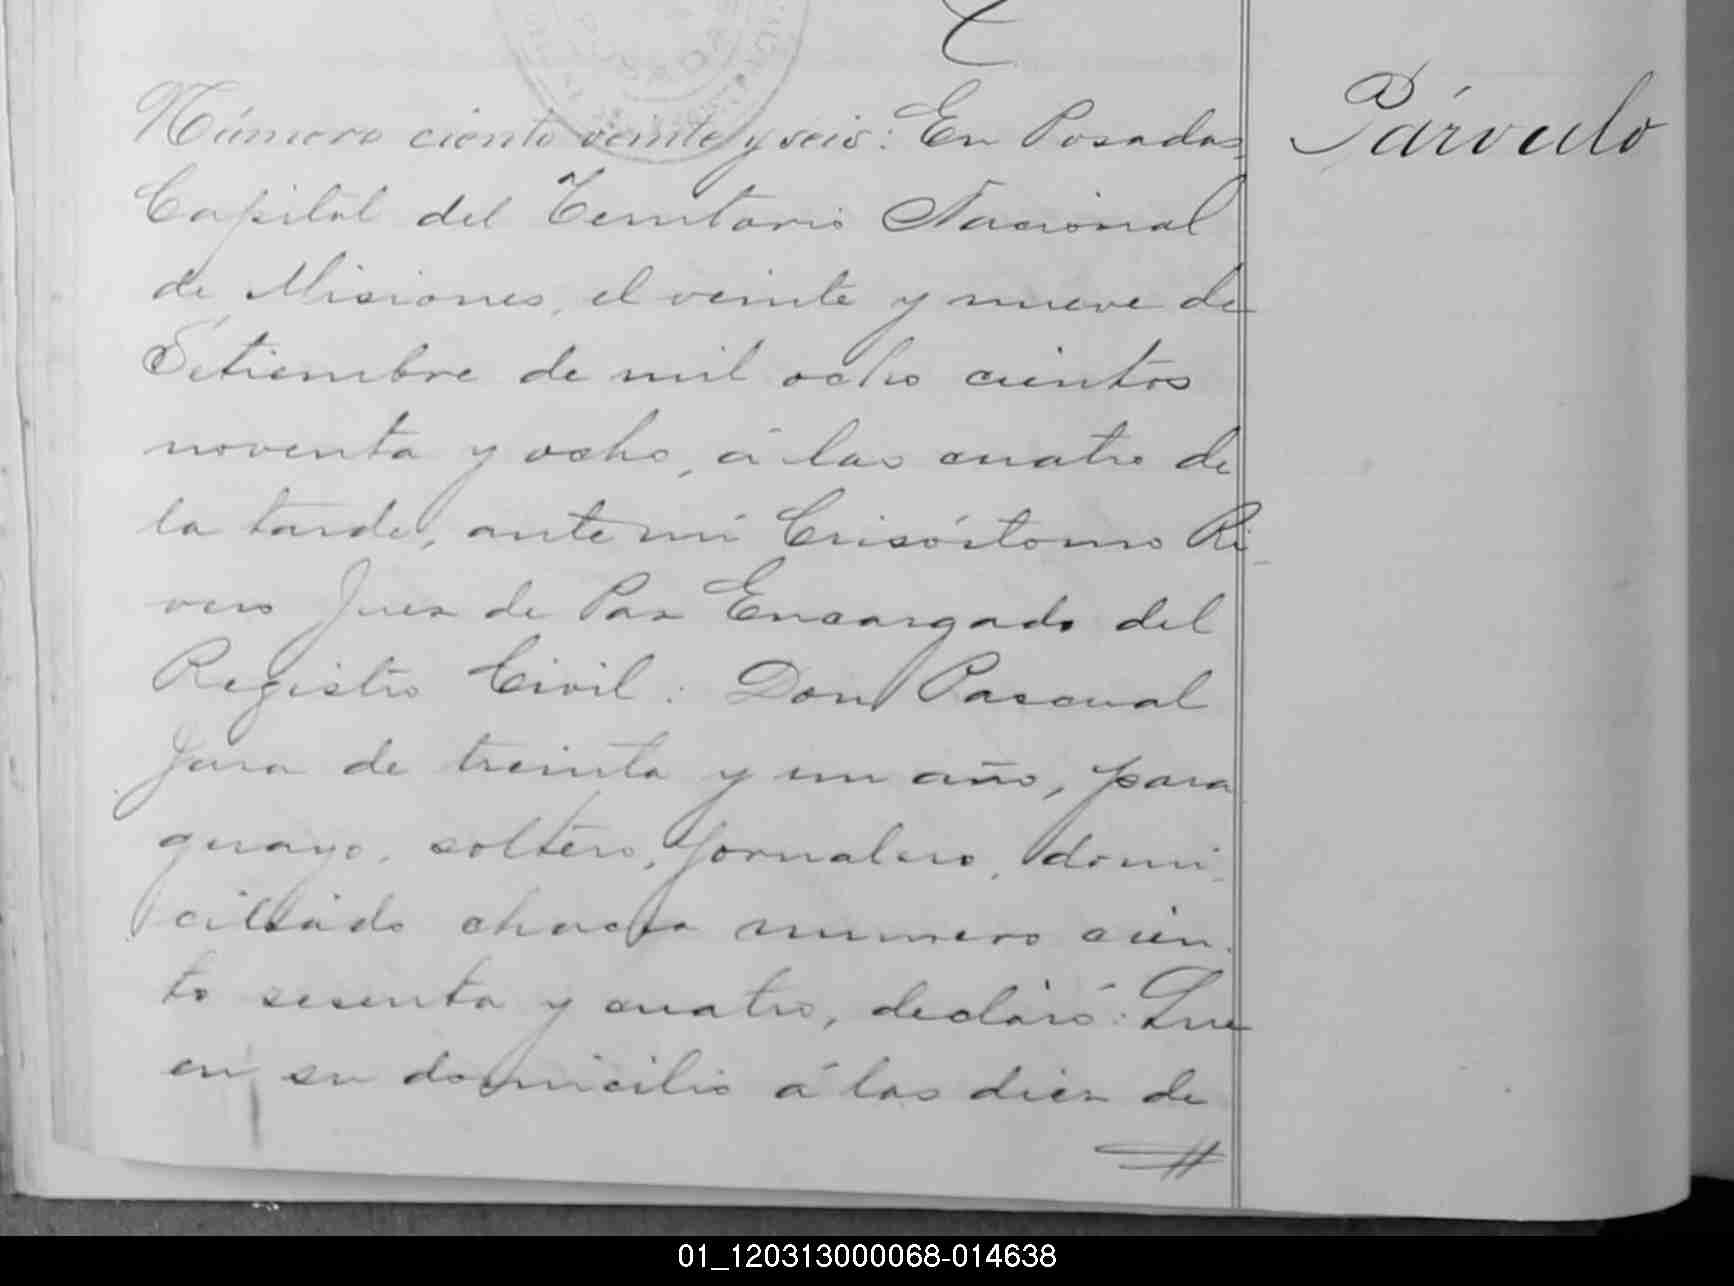 Número ciento veinte y seis: En Posadas
Párvulo
Capital del Territorio Nacional
de Misiones, el veinte y nueve de
Setiembre de mil ocho cientos
noventa y ocho, á las cuatro de
la tarde, ante mí Crisóstomo Ri-
vero Juez de Paz Encargado del
Registro Civil: Don Pascual
Jara de treinta y un año, para
guayo, soltero, jornalero, domi-
ciliado chacra numero cien-
to sesenta y cuatro, declaró: Que
en su domicilio á las diez de
01_120313000068-014638